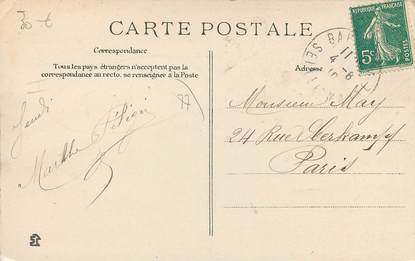 30 €
CARTE POSTALE
RÉPUBLIQUE FRANÇAISE
5c
POSTES
Correspondance
Tous les pays étrangers n'acceptent pas la
correspondance au recto, se renseigner à la Poste
Adresse
11
4 - 8
77
Jeudi
Marthe
Monsieur May
24 Rue Oberkampf
Paris